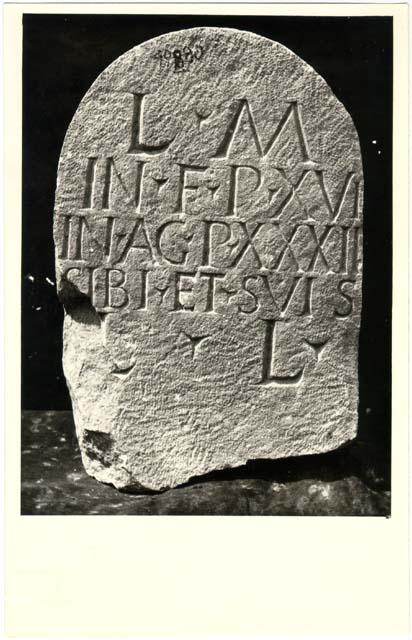 L · M
IN · F · P · XVI
IN · AG · P XXXII
SIBI · ET · SVIS
L ·